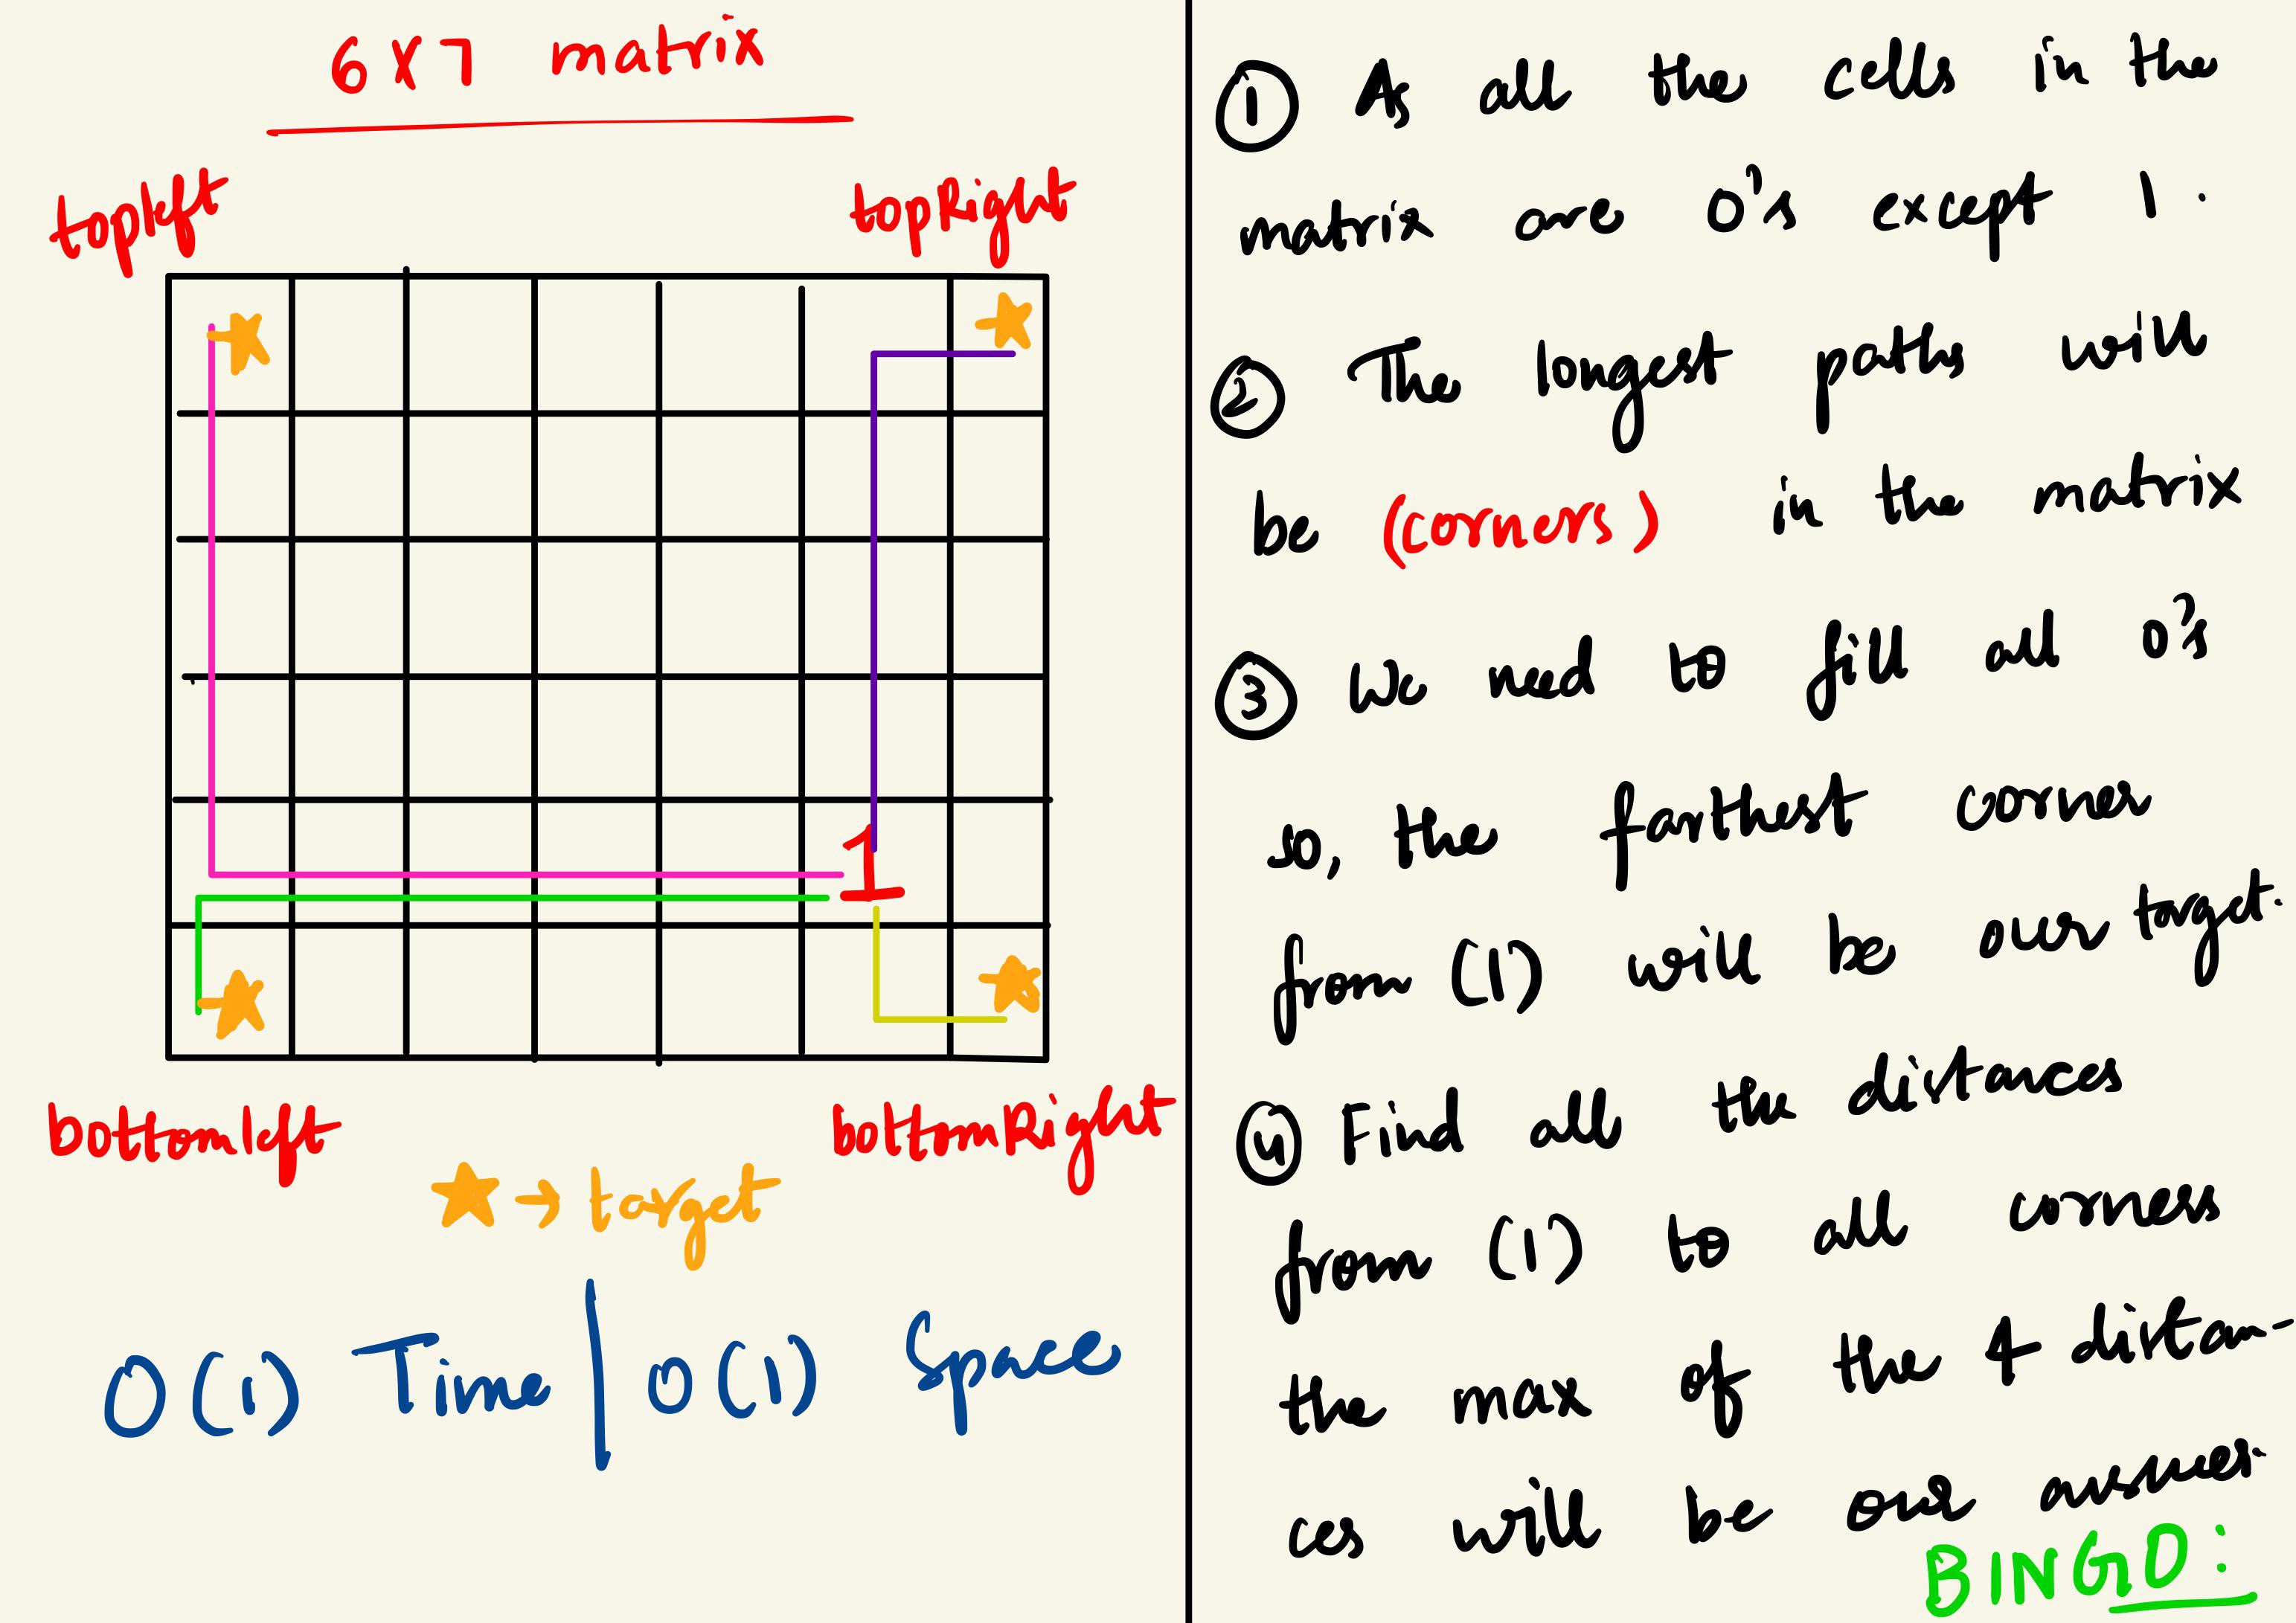 6 x 7 matrix
topleft topRight
1
bottomleft bottomRight
→ target
O(1) Time | O(1) Space
① As all the cells in the
matrix are 0's except 1.
② The longest paths will
be (corners) in the matrix
③ We need to fill all 0's
so, the farthest corner
from (1) will be our target.
④ Find all the distances
from (1) to all corners
the max of the 4 distan-
ces will be our answer.
BINGO: